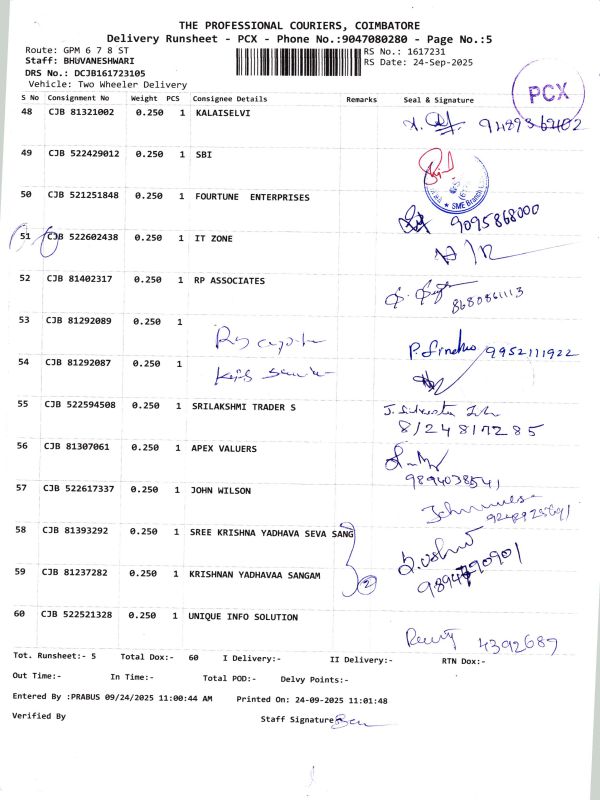 THE PROFESSIONAL COURIERS, COIMBATORE
Delivery Runsheet - PCX - Phone No.:9047080280 - Page No.:5
Route: GPM 6 7 8 ST
RS No.: 1617231
Staff: BHUVANESHWARI
RS Date: 24-Sep-2025
DRS No.: DCJB161723105
Vehicle: Two Wheeler Delivery
PCX
S No Consignment No Weight PCS Consignee Details Remarks Seal & Signature
48 CJB 81321002 0.250 1 KALAISELVI
49 CJB 522429012 0.250 1 SBI
SME Branch
50 CJB 521251848 0.250 1 FOURTUNE ENTERPRISES 9095868000
51 CJB 522602438 0.250 1 IT ZONE
52 CJB 81402317 0.250 1 RP ASSOCIATES 8680861113
53 CJB 81292089 0.250 1 9952111922
54 CJB 81292087 0.250 1
55 CJB 522594508 0.250 1 SRILAKSHMI TRADER S
8124817285
56 CJB 81307061 0.250 1 APEX VALUERS
9894038541
57 CJB 522617337 0.250 1 JOHN WILSON
58 CJB 81393292 0.250 1 SREE KRISHNA YADHAVA SEVA SANG
59 CJB 81237282 0.250 1 KRISHNAN YADHAVAA SANGAM 2
60 CJB 522521328 0.250 1 UNIQUE INFO SOLUTION 4392689
Tot. Runsheet:- 5 Total Dox:- 60 I Delivery:- II Delivery:- RTN Dox:-
Out Time:- In Time:- Total POD:- Delvy Points:-
Entered By :PRABUS 09/24/2025 11:00:44 AM Printed On: 24-09-2025 11:01:48
Verified By Staff Signature